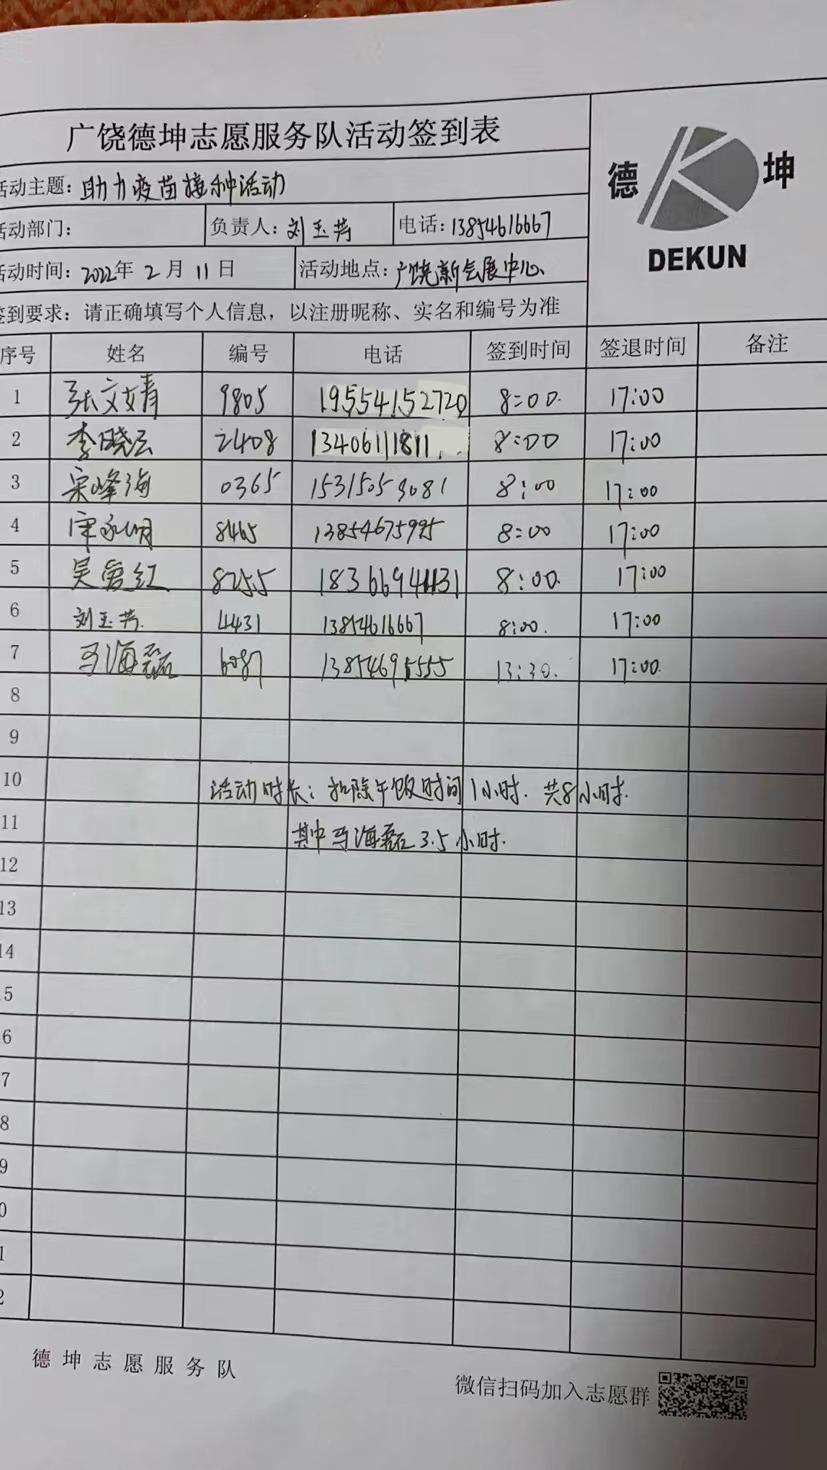 广饶德坤志愿服务队活动签到表
德 坤
DEKUN
活动主题：助力疫苗接种活动
活动部门： 负责人：刘玉芳 电话：13854616667
活动时间：2022年 2 月 11 日 活动地点：广饶新会展中心
签到要求：请正确填写个人信息，以注册昵称、实名和编号为准
序号 姓名 编号 电话 签到时间 签退时间 备注
1 张文婧 9805 19554152720 8:00 17:00
2 李晓云 2408 13406111811 8:00 17:00
3 宋峰海 0365 15315059081 8:00 17:00
4 8465 13854675995 8:00 17:00
5 吴红 8255 18366944131 8:00 17:00
6 刘玉芳 4431 13854616667 8:00 17:00
7 马海磊 6087 13854695555 13:30 17:00
8
9
10 活动时长：扣除午饭时间1小时.共8小时.
11 其中马海磊3.5小时.
12
13
14
5
6
7
8
9
0
1
2
德坤志愿服务队
微信扫码加入志愿群